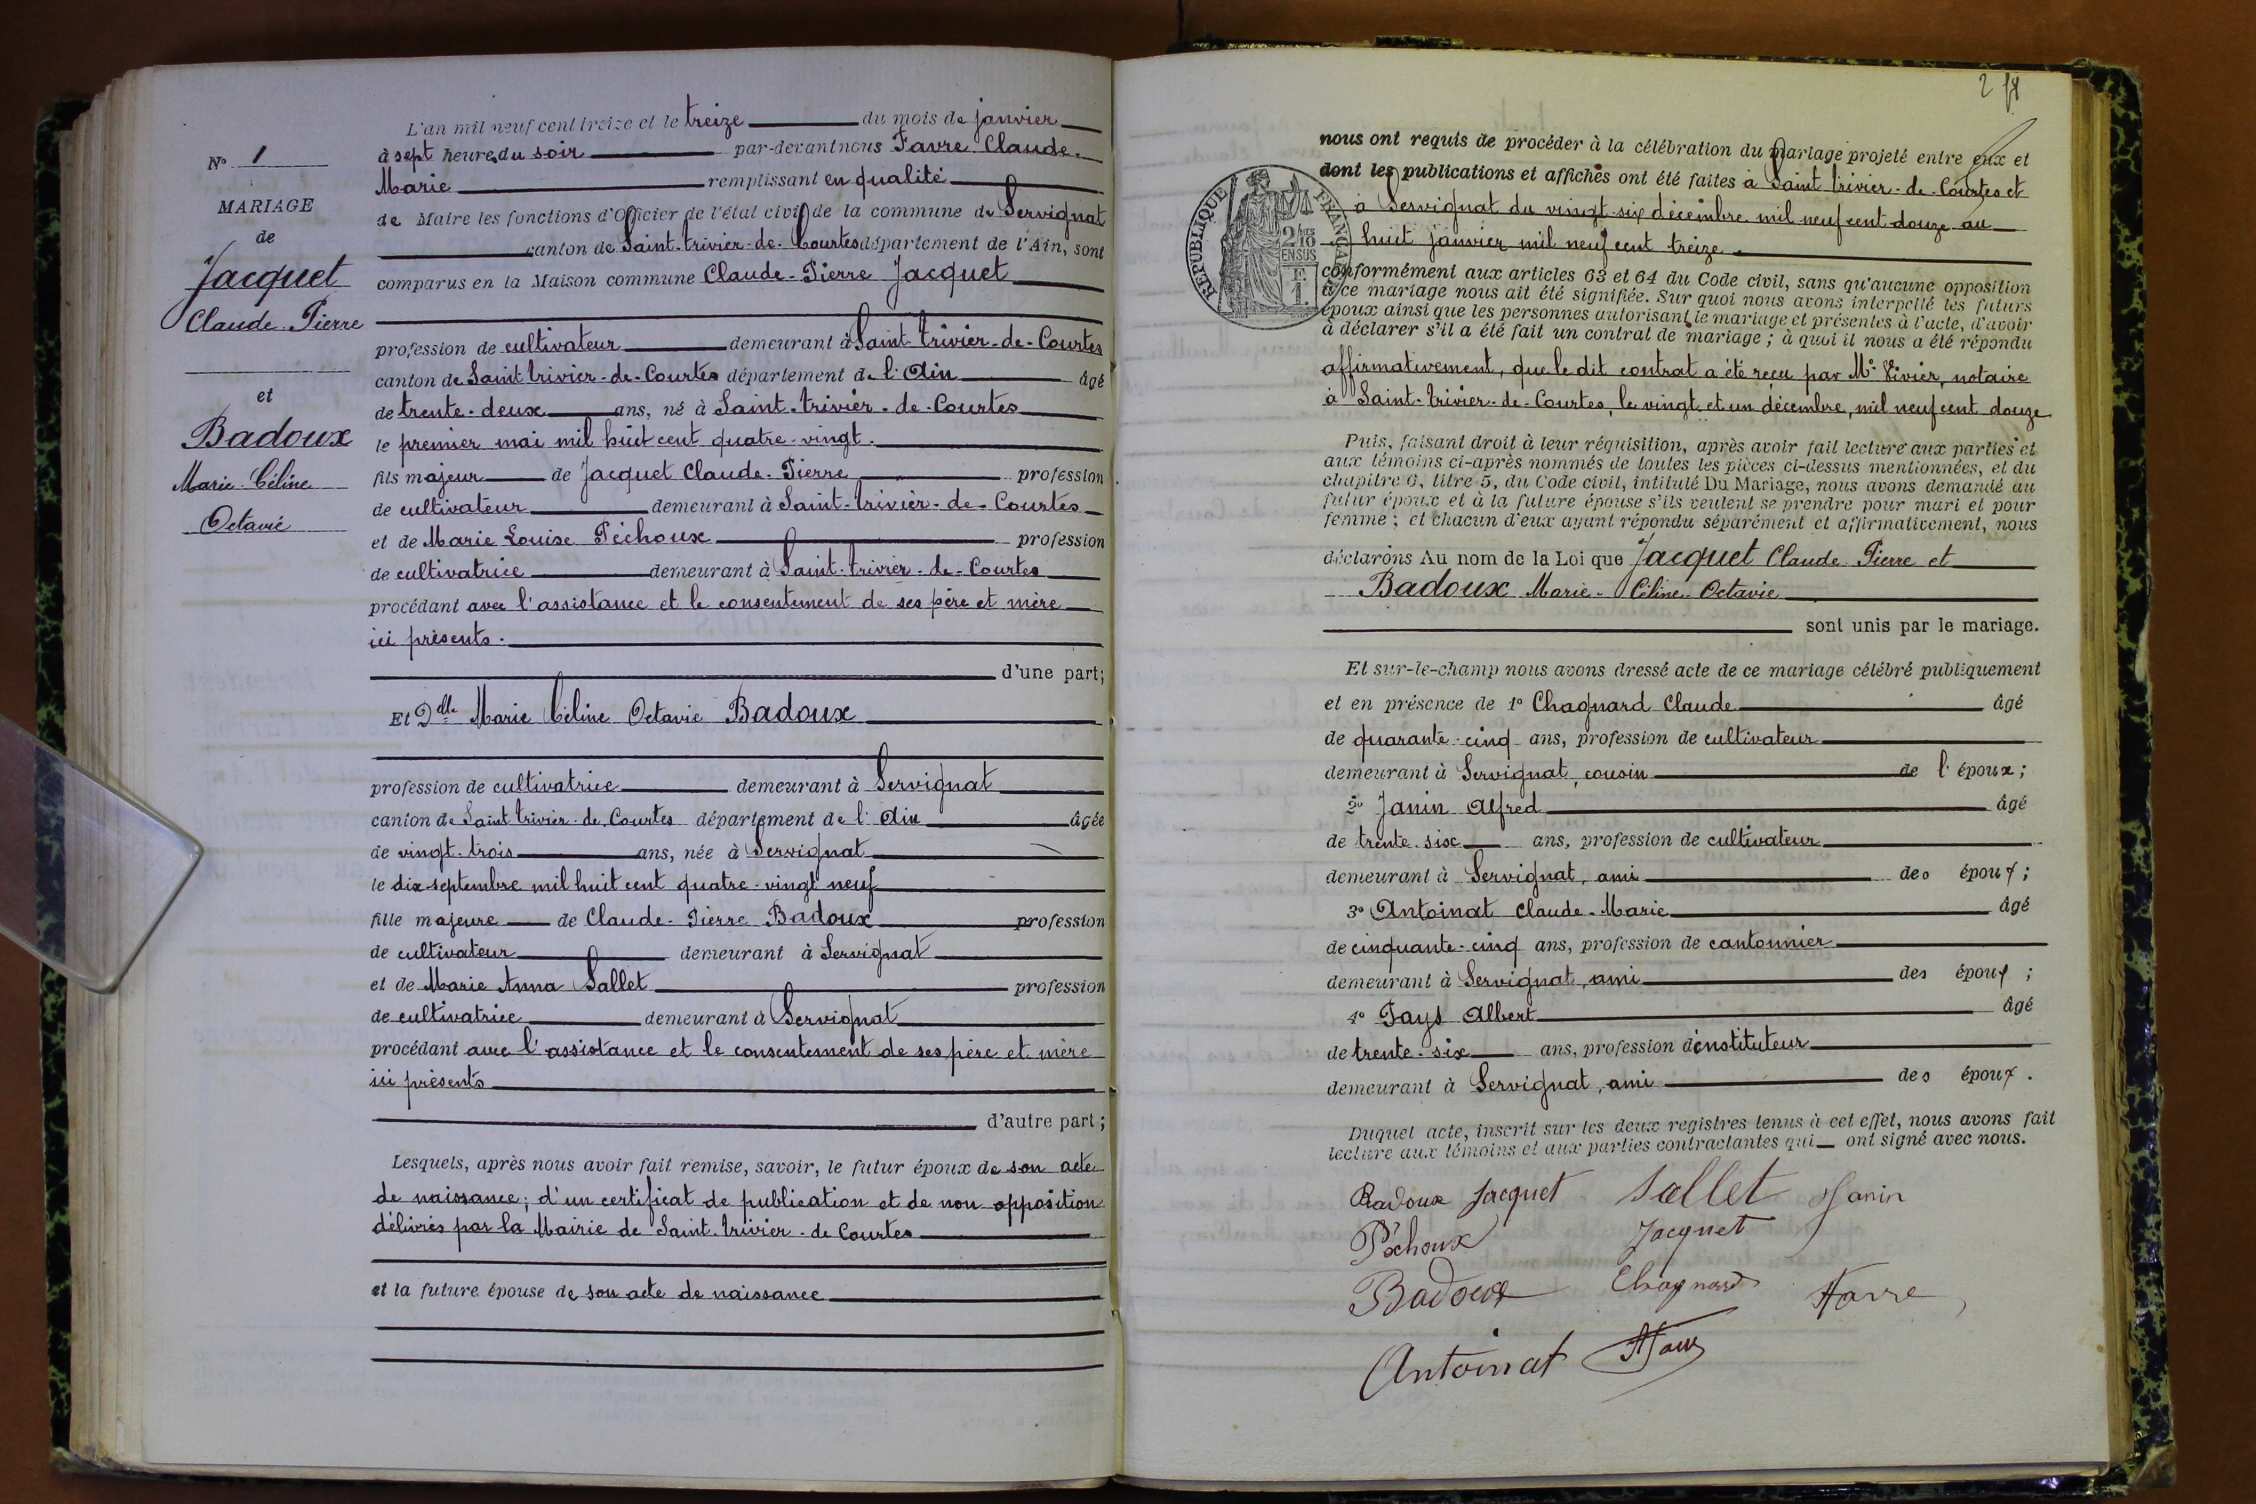 N° 1
MARIAGE
de
Jacquet
Claude-Pierre
et
Badoux
Marie-Céline
Octavie
L'an mil neuf cent treize et le treize du mois de janvier
à sept heures du soir par-devant nous Favre Claude-
Marie remplissant en qualité
de Maire les fonctions d'Officier de l'état civil de la commune de Servignat
canton de Saint-trivier-de-Courtes département de l'Ain, sont
comparus en la Maison commune Claude-Pierre Jacquet
profession de cultivateur demeurant à Saint-trivier-de-Courtes
canton de Saint trivier-de-Courtes département de l'Ain âgé
de trente-deux ans, né à Saint-trivier-de-Courtes
le premier mai mil huit cent quatre-vingt.
fils majeur de Jacquet Claude-Pierre profession
de cultivateur demeurant à Saint-trivier-de-Courtes
et de Marie Louise Péchoux profession
de cultivatrice demeurant à Saint-trivier-de-Courtes
procédant avec l'assistance et le consentement de ses père et mère
ici présents.
d'une part;
Et Dlle Marie Céline Octavie Badoux
profession de cultivatrice demeurant à Servignat
canton de Saint trivier-de-Courtes département de l'Ain âgée
de vingt-trois ans, née à Servignat
le dix septembre mil huit cent quatre-vingt neuf
fille majeure de Claude-Pierre Badoux profession
de cultivateur demeurant à Servignat
et de Marie Anna Sallet profession
de cultivatrice demeurant à Servignat
procédant avec l'assistance et le consentement de ses père et mère
ici présents
d'autre part;
Lesquels, après nous avoir fait remise, savoir, le futur époux de son acte
de naissance; d'un certificat de publication et de non opposition
délivrés par la Mairie de Saint-trivier-de Courtes
et la future épouse de son acte de naissance
2
RÉPUBLIQUE FRANÇAISE
2/10
EN SUS
F
1
nous ont requis de procéder à la célébration du mariage projeté entre eux et
dont les publications et affiches ont été faites à Saint trivier-de-Courtes et
à Servignat du vingt-six décembre mil neuf cent douze au
huit janvier mil neuf cent treize
conformément aux articles 63 et 64 du Code civil, sans qu'aucune opposition
à ce mariage nous ait été signifiée. Sur quoi nous avons interpellé les futurs
époux ainsi que les personnes autorisant le mariage et présentes à l'acte, d'avoir
à déclarer s'il a été fait un contrat de mariage; à quoi il nous a été répondu
affirmativement, que le dit contrat a été reçu par Me Vivier, notaire
à Saint-trivier-de-Courtes, le vingt et un décembre, mil neuf cent douze
Puis, faisant droit à leur réquisition, après avoir fait lecture aux parties et
aux témoins ci-après nommés de toutes les pièces ci-dessus mentionnées, et du
chapitre 6, titre 5, du Code civil, intitulé Du Mariage, nous avons demandé au
futur époux et à la future épouse s'ils veulent se prendre pour mari et pour
femme; et chacun d'eux ayant répondu séparément et affirmativement, nous
déclarons Au nom de la Loi que Jacquet Claude-Pierre et
Badoux Marie-Céline-Octavie
sont unis par le mariage.
Et sur-le-champ nous avons dressé acte de ce mariage célébré publiquement
et en présence de 1° Chagnard Claude âgé
de quarante-cinq ans, profession de cultivateur
demeurant à Servignat, cousin de l'époux;
2° Janin Alfred âgé
de trente-six ans, profession de cultivateur
demeurant à Servignat, ami des époux;
3° Antoinat Claude-Marie âgé
de cinquante-cinq ans, profession de cantonnier
demeurant à Servignat, ami des époux;
4° Fays Albert âgé
de trente-six ans, profession d'instituteur
demeurant à Servignat, ami des époux.
Duquel acte, inscrit sur les deux registres tenus à cet effet, nous avons fait
lecture aux témoins et aux parties contractantes qui ont signé avec nous.
Badoux Jacquet Sallet Janin
Péchoux Jacquet
Badoux Chagnard Favre
Antoinat AFays